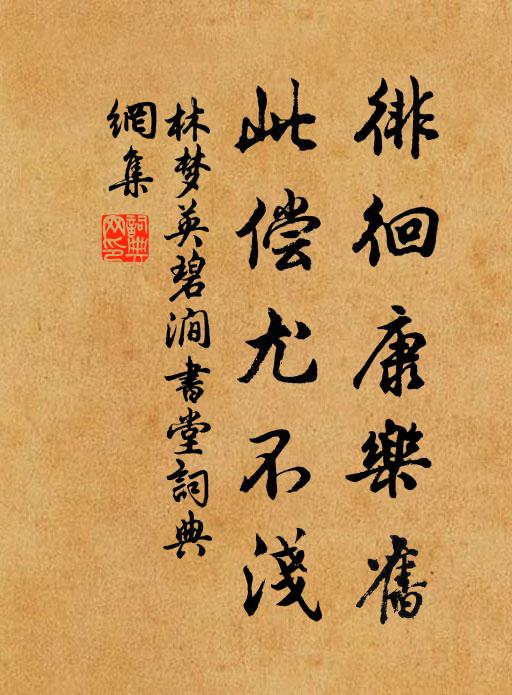 徘徊康樂舊
此偿尤不淺
林梦英碧澗書堂詞典
網集
詞典